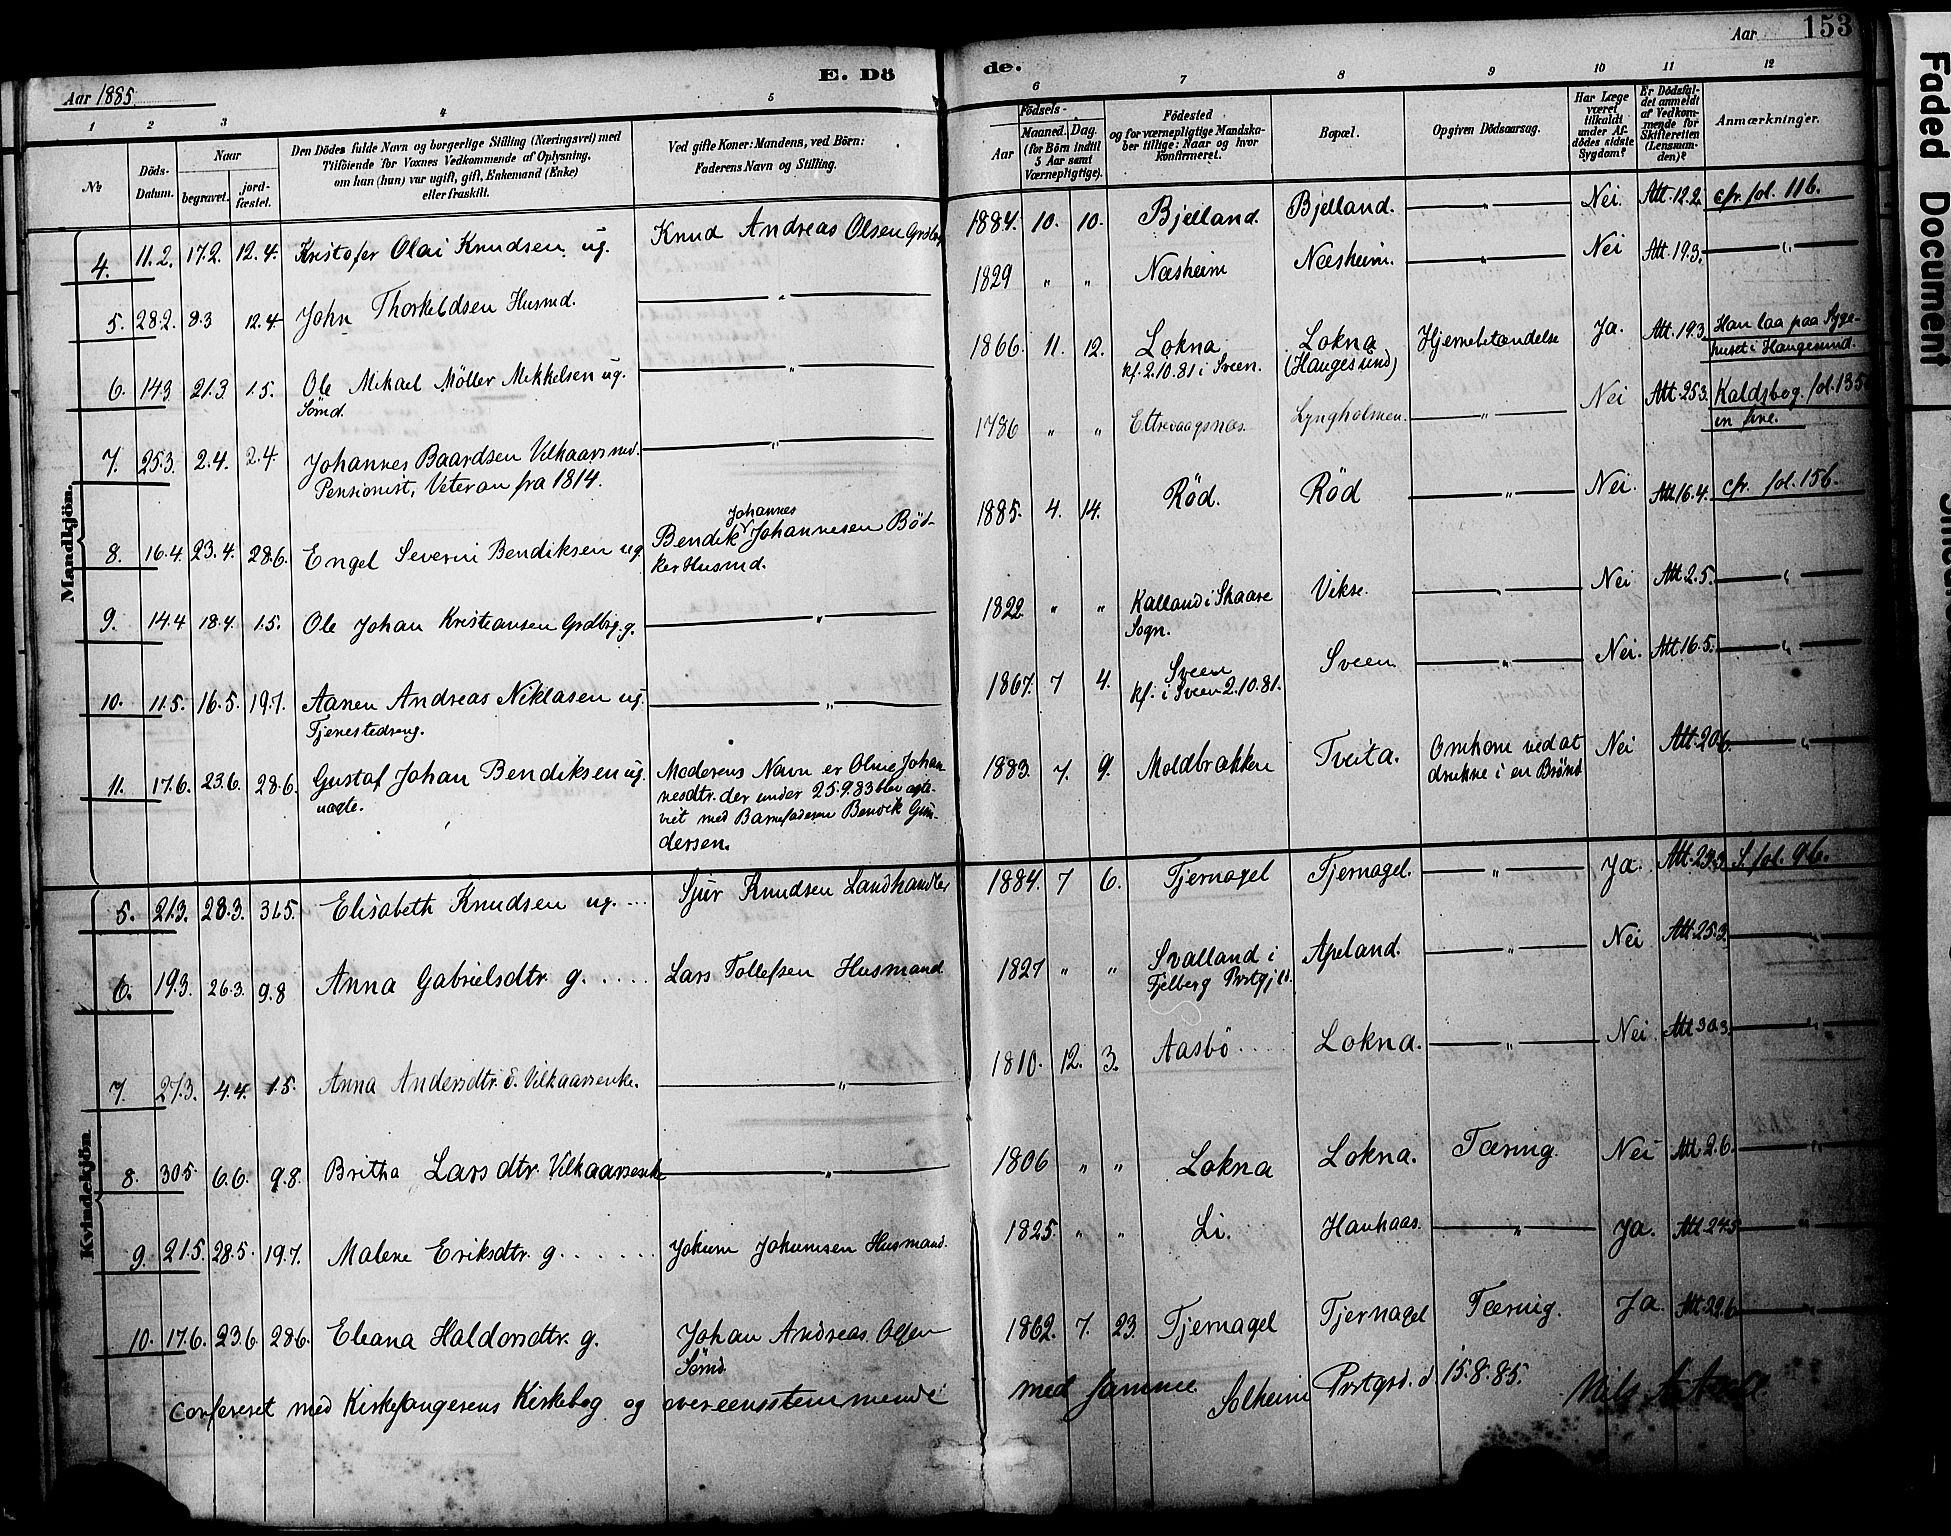 Aar 1885
E. Döde.
Aar
153
1 2 3 4 5 6 7 8 9 10 11 12
No
Döds-Datum.
Naar
begravet.
jord-fæstet.
Den Dödes fulde Navn og borgerlige Stilling (Næringsvei) med
Tilföiende for Voxnes Vedkommende af Oplysning,
om han (hun) var ugift, gift, Enkemand (Enke)
eller fraskilt.
Ved gifte Koner: Mandens, ved Börn:
Faderens Navn og Stilling.
Födsels-
Aar
Maaned. Dag.
(for Börn indtil
5 Aar samt
Værnepligtige).
Födested
og for værnepligtige Mandska-
ber tillige: Naar og hvor
konfirmeret.
Bopæl.
Opgiven Dödsaarsag.
Har Læge
været
tilkaldt
under Af-
dödes sidste
Sygdom?
Er Dödsfal-
det anmeldt
af Vedkom-
mende for
Skifteretten
(Lensman-
den)?
Anmærkninger.
Mandkjön.
4. 11.2. 17.2. 12.4. Kristofer Olai Knudsen ug. Knud Andreas Olsen Grdbrg 1884. 10. 10. Bjelland. Bjelland. " Nei. Att. 12.2. cfr. fol. 116.
5. 28.2. 8.3 12.4 John Thorkeldsen Husmd. " 1829 " " Næsheim Næsheim. " Nei Att. 19.3. "
6. 14.3 21.3 1.5. Ole Mikael Möller Mikkelsen ug. " 1866. 11. 12. Lokna Lokna Hjernebetændelse Ja. Att. 19.3 Han laa paa Syge-
Sömd. kf. 2.10.81 i Sveen. (Haugesund) huset i Haugesund.
7. 25.3. 2.4. 2.4. Johannes Baardsen Vilkaarsmd. " 1786 " " Ettrevaagsnæs. Lyngholmen. " Nei Att. 25.3. Kaldsbog. fol. 135
Pensionist, Veteran fra 1814. in fine.
8. 16.4. 23.4. 28.6. Engel Severin Bendiksen ug. Bendik Johannes Johannesen Bød- 1885. 4. 14. Rød. Rød " Nei. Att. 16.4. cfr. fol. 156.
ker Husmd.
9. 14.4 18.4. 1.5. Ole Johan Kristiansen Grdbrg. g. " 1822 " " Kalland i Skaare Vikse. " Nei Att. 2.5. "
Sogn.
10. 11.5. 16.5. 19.7. Aanen Andreas Niklasen ug. " 1867. 7 4. Sveen Sveen " Nei. Att. 16.5. "
Tjenestedreng. kf. i Sveen 2.10.81.
11. 17.6. 23.6. 28.6. Gustaf Johan Bendiksen ug. Moderens Navn er Oline Johan- 1883. 7. 9. Moldbrækken Tveita. Omkom ved at Nei Att. 20.6. "
uægte. nesdtr. der under 25.9.83 blev ægte- drukne i en Brønd
viet med Barnefaderen Bendik Gun-
dersen.
Kvindekjön
5. 21.3. 28.3. 31.5. Elisabeth Knudsen ug. Sjur Knudsen Landhandler 1884. 7 6. Tjernagel Tjernagel. " Ja. Att. 23.3. S. fol. 96.
6. 19.3. 26.3. 9.8 Anna Gabrielsdtr. g. Lars Tollefsen Husmand 1827 " " Svalland i Apeland. " Nei Att. 25.3. "
Fjelberg Prstgjld.
7. 27.3. 4.4. 1.5. Anna Andersdtr. Vilkaarsenke. " 1810. 12. 3. Aasbö Lokna. " Nei. Att. 30.3. "
8. 30.5 6.6. 9.8. Britha Larsdtr. Vilkaarsenke " 1806 " " Lokna Lokna. Tæring. Nei Att. 2.6. "
9. 21.5. 28.5. 19.7. Malene Eriksdtr. g. Jokum Jokumsen Husmand. 1825. " " Li. Haukaas. " Ja. Att. 24.5 "
10. 17.6. 23.6. 28.6. Eleana Haldorsdtr. g. Johan Andreas Olsen 1862. 7. 23. Tjernagel Tjernagel Tæring. Ja. Att. 22.6. "
Sömd.
Confereret med Kirkesangerens Kirkebog og overeensstemmende med samme. Solheim Prstgrd. d. 15.8.85. Nils
Faded Document